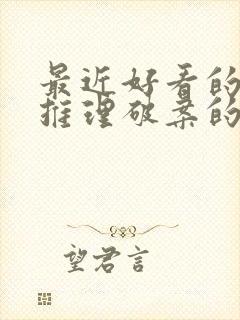 最近好看的
推理破案的
望君言